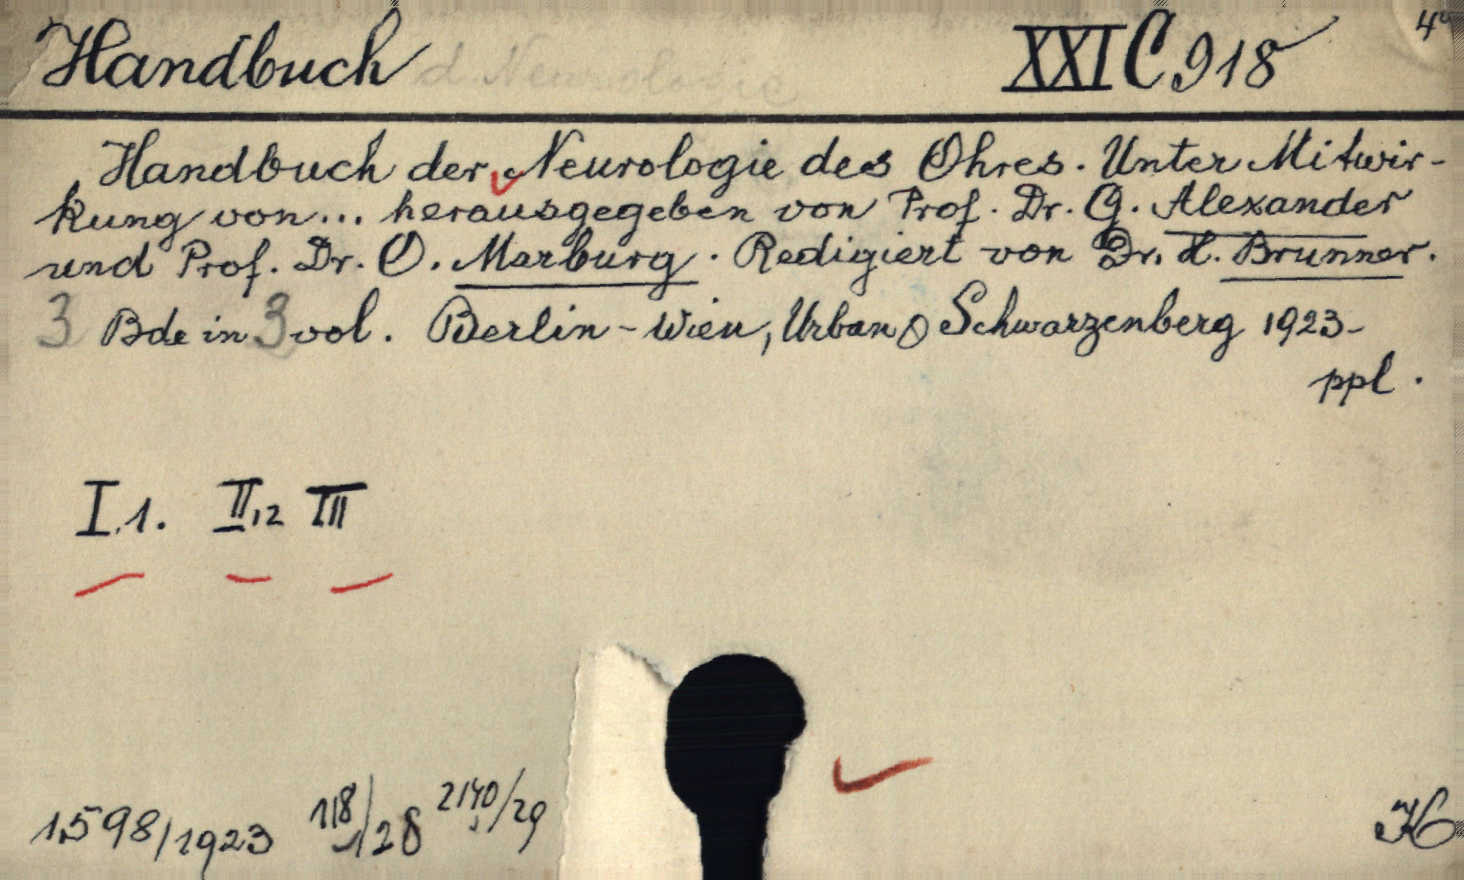 Handbuch d. Neurologie XXI C 918 4°
Handbuch der Neurologie des Ohres. Unter Mitwir-
kung von... herausgegeben von Prof. Dr. G. Alexander
und Prof. Dr. O. Marburg. Redigiert von Dr. H. Brunner.
3 Bde in 3 vol. Berlin - Wien, Urban & Schwarzenberg 1923-
ppl.
I.1. II,12 III
1598/1923 118/28 2140/29